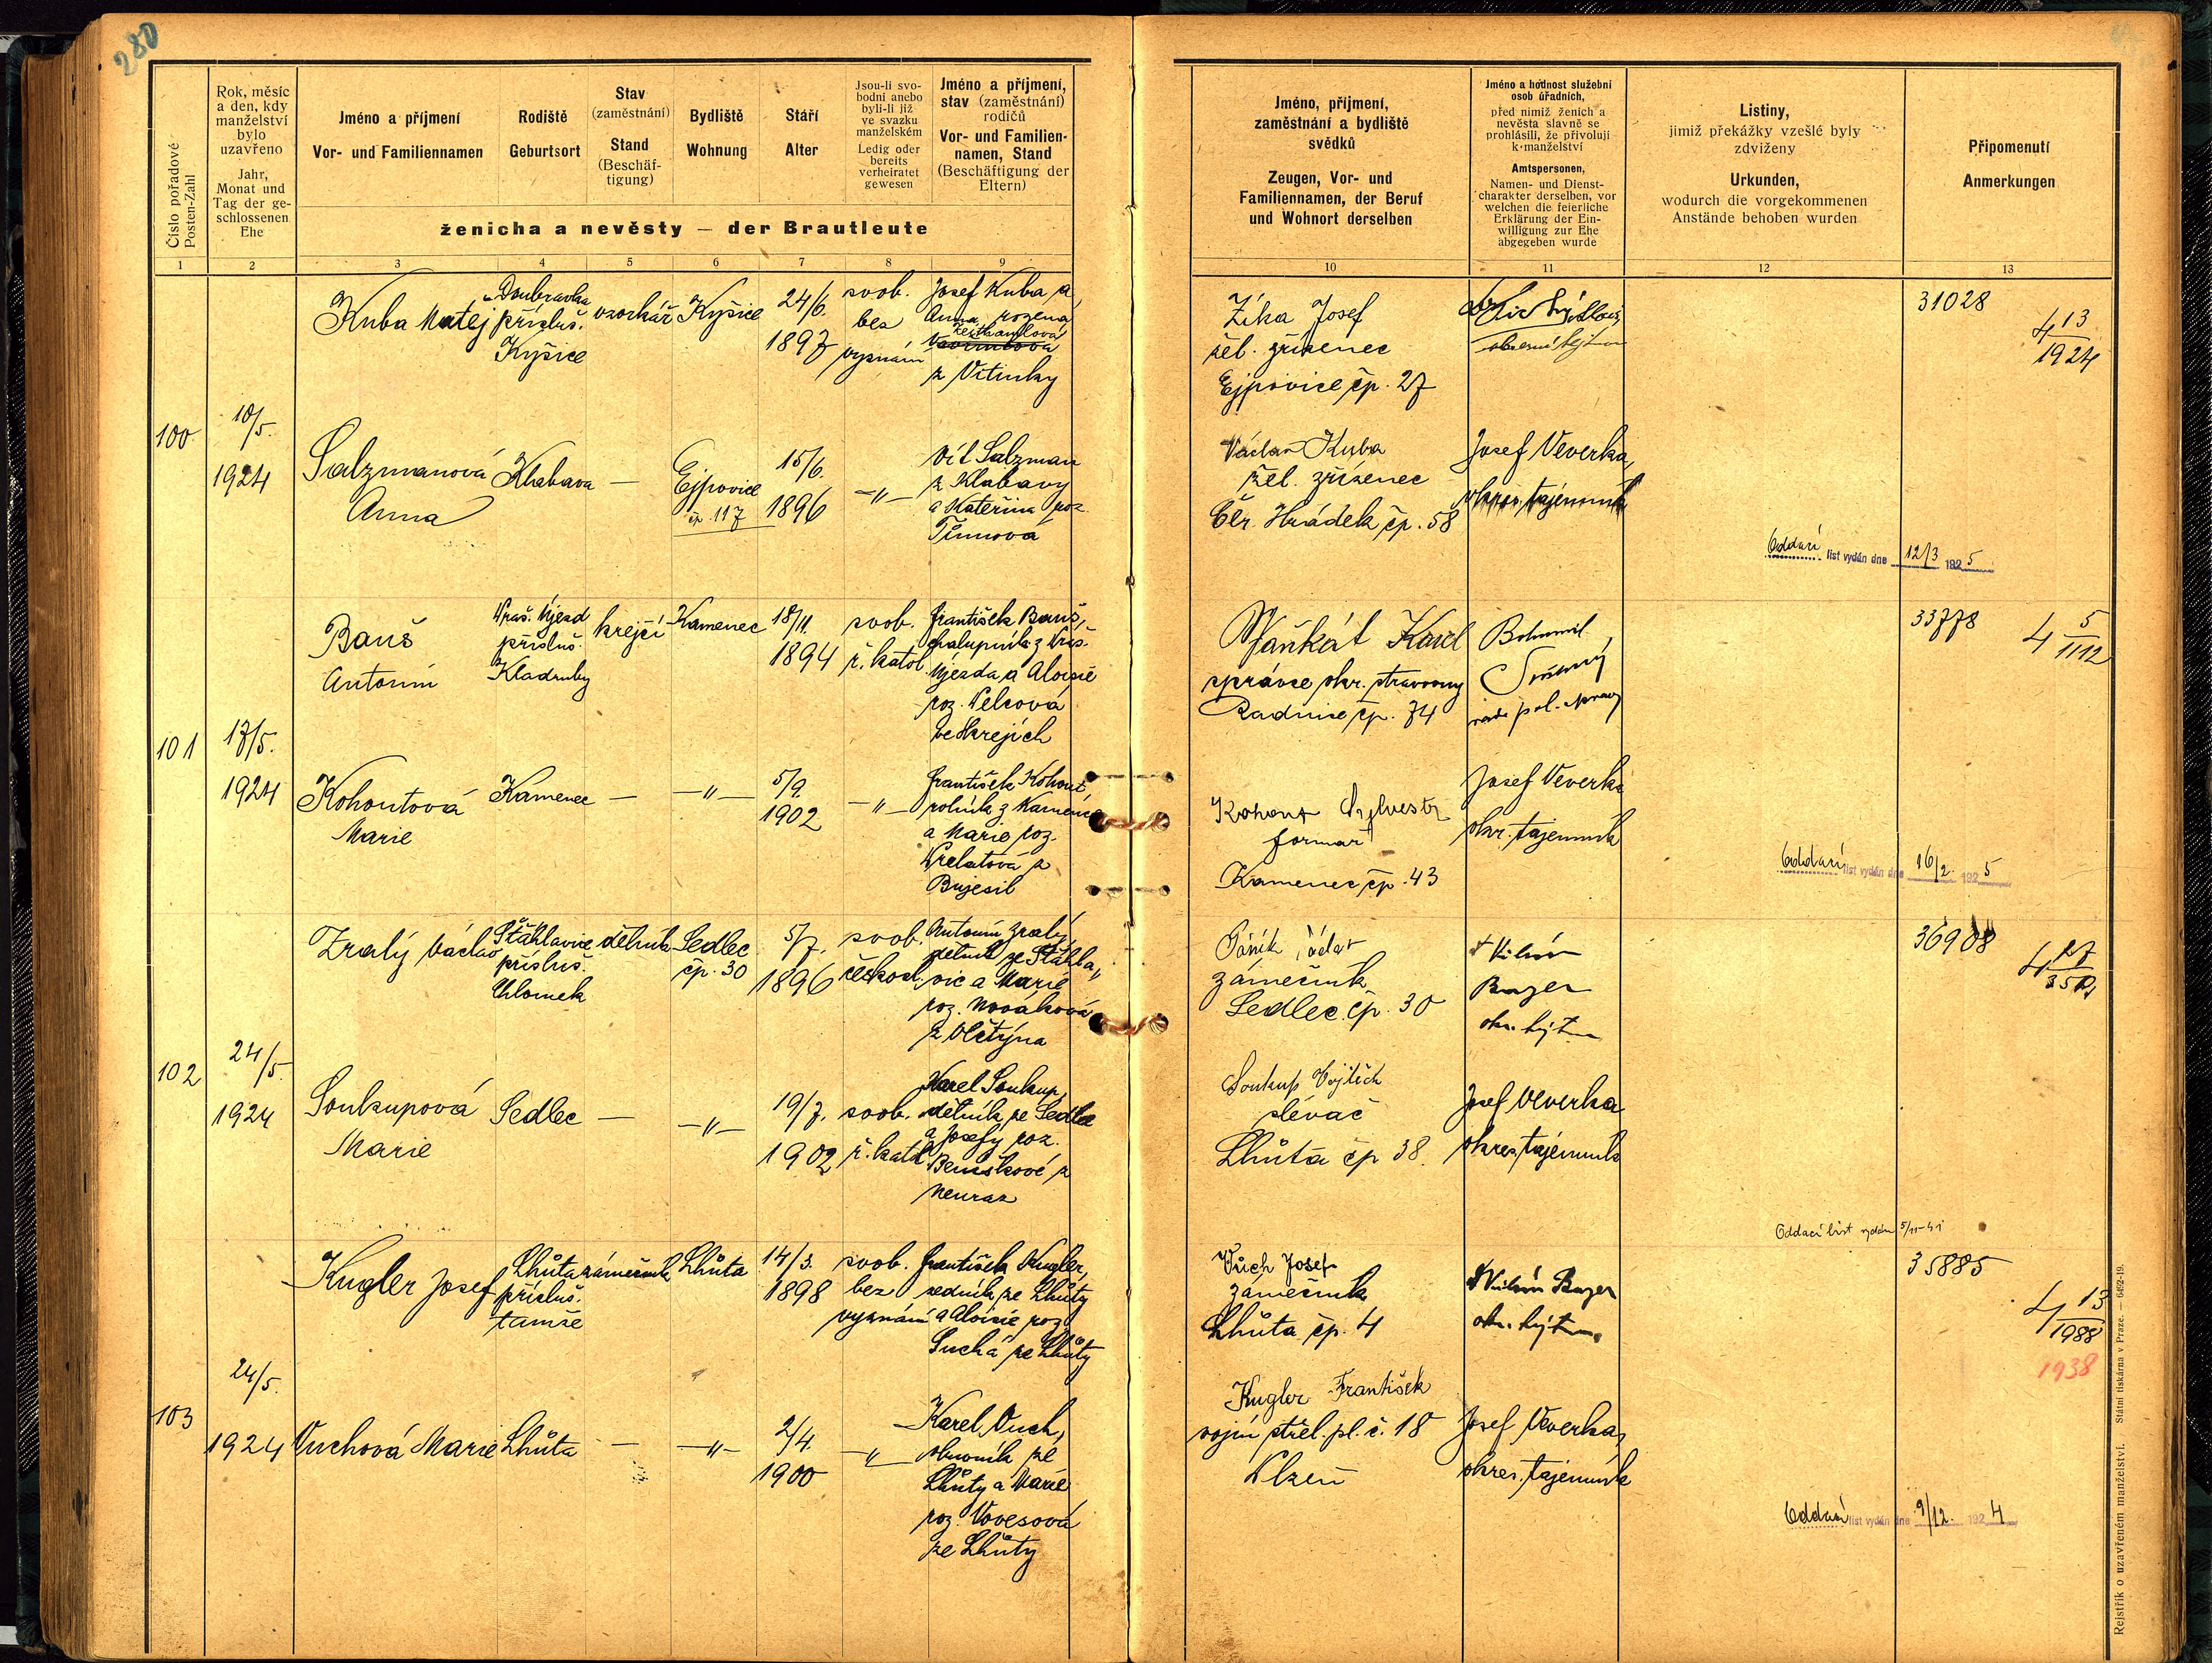 280
Číslo pořadové
Posten-Zahl
Rok, měsíc
a den, kdy
manželství
bylo
uzavřeno
Jahr,
Monat und
Tag der ge-
schlossenen
Ehe
Jméno a příjmení
Vor- und Familiennamen
Rodiště
Geburtsort
Stav
(zaměstnání)
Stand
(Beschäf-
tigung)
Bydliště
Wohnung
Stáří
Alter
Jsou-li svo-
bodni anebo
byli-li již
ve svazku
manželském
Ledig oder
bereits
verheiratet
gewesen
Jméno a příjmení,
stav (zaměstnání)
rodičů
Vor- und Familien-
namen, Stand
(Beschäftigung der
Eltern)
ženicha a nevěsty — der Brautleute
Jméno, příjmení,
zaměstnání a bydliště
svědků
Zeugen, Vor- und
Familiennamen, der Beruf
und Wohnort derselben
Jméno a hodnost služební
osob úřadních,
před nimiž ženich a
nevěsta slavně se
prohlásili, že přivolují
k manželství
Amtspersonen,
Namen- und Dienst-
charakter derselben, vor
welchen die feierliche
Erklärung der Ein-
willigung zur Ehe
abgegeben wurde
Listiny,
jimiž překážky vzešlé byly
zdviženy
Urkunden,
wodurch die vorgekommenen
Anstände behoben wurden
Připomenutí
Anmerkungen
1 2 3 4 5 6 7 8 9 10 11 12 13
100
10/5.
1924
Kuba Matej
Doubravka
přísluš.
Kyšice
Kyšice
24/6.
1897
svob.
bez
vyznání
Josef Kuba a
Anna, rozená
z Vitinky
Žika Josef
žel. zřízenec
Ejpovice čp. 27
31028
4 13
1924
Salzmanová
Anna
Klabava
—
Ejpovice
čp. 117
15/6.
1896
—"—
Vít Salzman
z Klabavy
a Kateřina roz.
Václav Kuba
žel. zřízenec
Čer. Hrádek čp. 58
Josef Veverka,
okres. tajemník
Oddací list vydán dne 12/3 1925
101
17/5.
1924
Bauš
Antonín
Vras. Újezd
přísluš.
Kladruby
krejčí
Kamenec
18/11.
1894
svob.
ř. katol.
František Bauš,
chalupník z Vras.
Újezda a Aloisie
roz. Velcová
ve Skrejích
Vaňkát Karel
správce okr. stravovny
Radnice čp. 74
Bohumil
rada pol. správy
33778
4 5
1112
Kohoutová
Marie
Kamenec
—
—"—
5/9.
1902
—"—
František Kohout,
rolník z Kamence
a Marie roz.
z
Bujesil
Kohout Sylvestr
formar
Kamenec čp. 43
Josef Veverka
okr. tajemník
Oddací list vydán dne 16/2. 1925
102
24/5.
1924
Zralý Václav
Štáhlavice
přísluš.
Chlomek
dělník
Sedlec
čp. 30
5/7.
1896
svob.
českosl.
Antonín Zralý,
dělník ze Štáhla„
vic a Marie
roz. Nováková
z
zámečník
Sedlec čp. 30
Vilém
Bayer
okr. hejtman
36908
4 27
Soukupová
Marie
Sedlec
—
—"—
19/7.
1902
svob.
ř. katol.
Karel Soukup,
dělník ze Sedlce
a Josefy roz.
Beneškové z
Neuraz
Soukup Vojtěch
slévač
Lhůta čp 38.
Josef Veverka
okres. tajemník
Oddací list vydán 5/11-41
103
24/5.
1924
Kugler Josef
Lhůta
přísluš.
tamže
zámečník
Lhůta
14/3.
1898
svob.
bez
vyznání
František Kugler,
zedník ze Lhůty
a Aloisie roz.
Suchá ze Lhůty
Vůch Josef
zámečník
Lhůta čp. 4
Vilém Bayer
okr. hejtman
35885
4 13
1988
1938
Vuchová Marie
Lhůta
—
—"—
2/4.
1900
—"—
Karel Vuch,
obuvník ze
Lhůty a Marie
roz. Vovesová
ze Lhůty
Kugler František
vojín střel. pl. č. 18
Plzeň
Josef Veverka,
okres. tajemník
Oddací list vydán dne 9/12. 1924
Rejstřík o uzavřeném manželství. Státní tiskárna v Praze. — 6492-19.